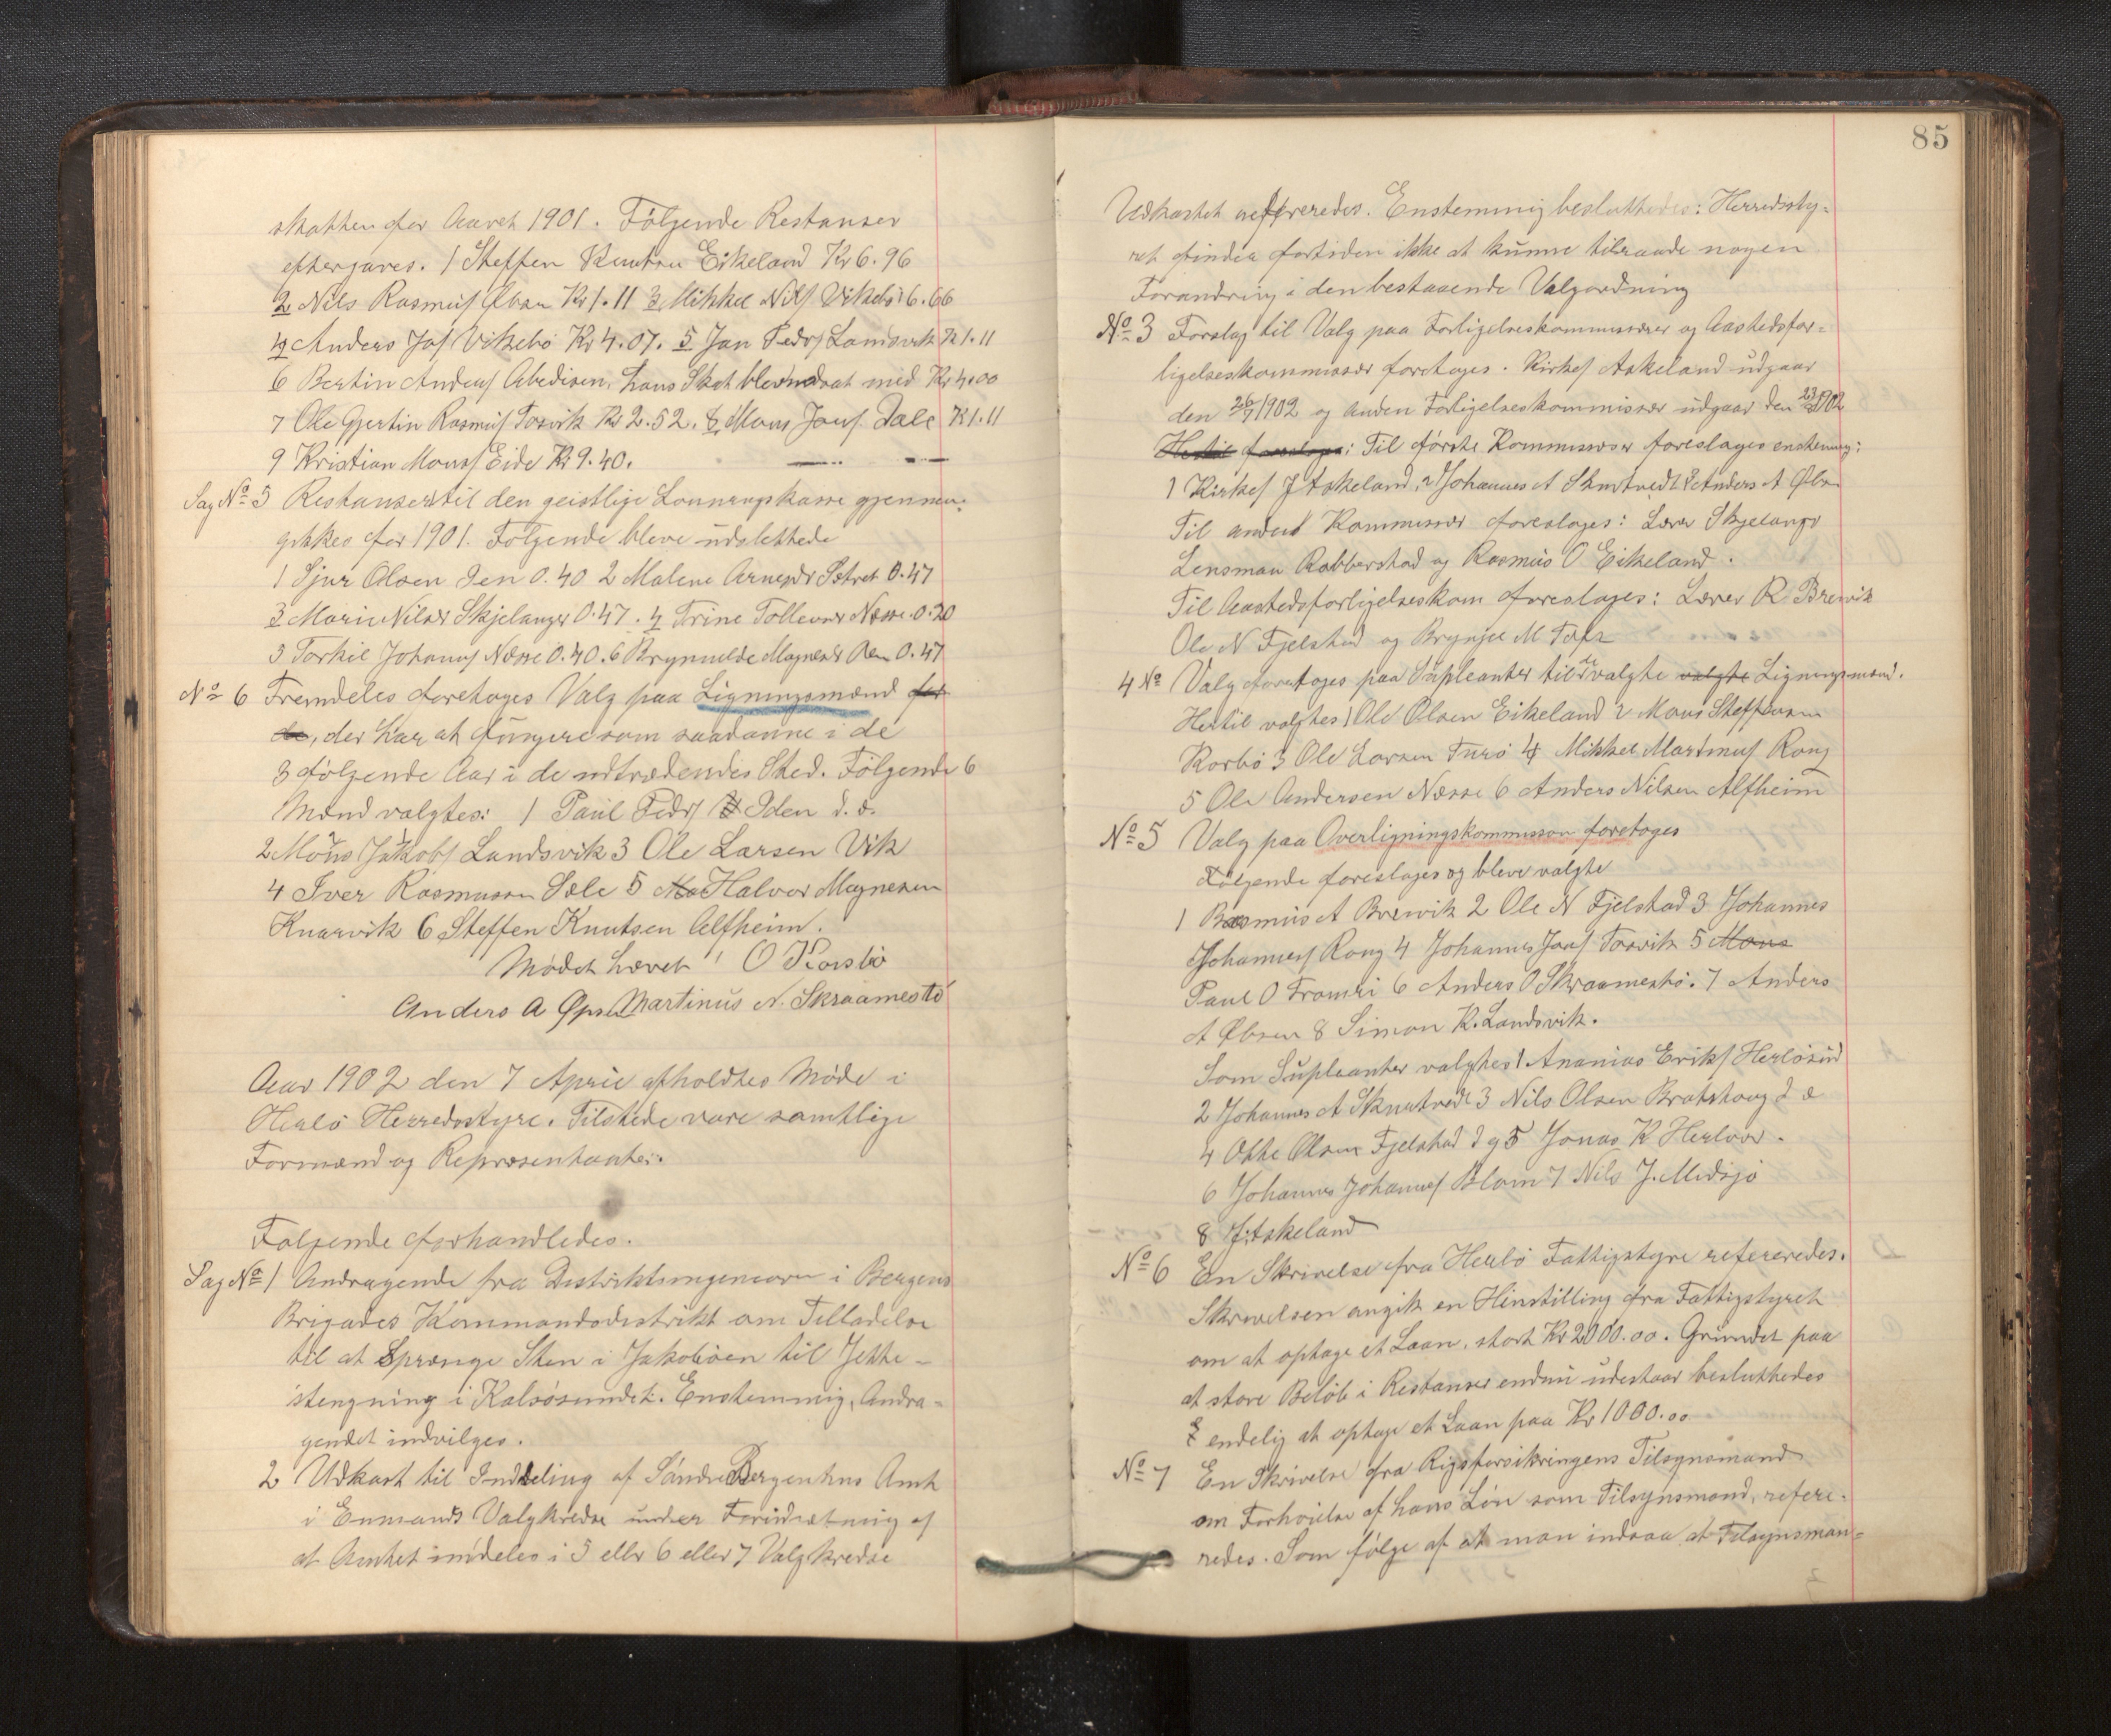 skatten for Aaret 1901. Følgende Restanser
eftergaves. 1 Steffen Knutsen Eikeland Kr 6.96
2 Nils Rasmus/ Øbsen Kr 1.11 3 Mikkel Nils/ Vikebö 6.66
4 Anders Jo/ Vikebö Kr 4.07. 5 Jan Peds/ Landsvik K 1.11
6 Bertin Anders/ Abedisen, hans Skat blev med Kr 4.00
7 Ole Gjertin Rasmus/ Tosvik Kr 2.52. 8 Mons Jons/ Dale K 1.11
9 Kristian Mons/ Eide Kr 9.40.
Sag No 5 Restanser til den geistlige Lønningskasse gjennem-
gikkes for 1901. Følgende bleve udslettede
1 Sjur Olsen Iden 0.40 2 Malene Arnesdr Sætret 0.47
3 Mari Nilsdr Skjelanger 0.47. 4 Trine Tollevsdr Nesse 0.20
5 Torkil Johans/ Nesse 0.40. 6 Brynnilde Magnesdr 0.47
No 6 Fremdeles foretoges Valg paa Ligningsmænd for
de, der har at fungere som saadanne i de
3 følgende Aar i de udtrædendes Sted. Følgende 6
Mænd valgtes: 1 Paul Peds/ Iden d. æ.
2 Mons Jakobs/ Landsvik 3 Ole Larsen Vik
4 Iver Rasmussen Sæle 5 Ma Halvor Magnesen
Knarvik 6 Steffen Knutsen Alfheim.
Mødet hævet O Korsbö
Anders A Øpsen Martinus N. Skraamestö
Aar 1902 den 7 April afholdtes Møde i
Herlö Herredsstyre. Tilstede vare samtlige
Formænd og Repræsentanter.
Følgende forhandledes.
Sag No 1 Andragende fra Distriktsingeniøren i Bergens
Brigades Kommandodistrikt om Tilladelse
til at Sprænge Sten i Jakobøen til Jette-
stengning i Kalsøsundet. Enstemmig, Andra-
gendet indvilges.
2 Udkast til Inddeling af Söndre Bergenhus Amt
i Enmands Valgkredse under Forudsætning af
at Amtet inddeles i 5 eller 6 eller 7 Valgkredse
85
Udkastet refereredes. Enstemmig besluttedes: Herredssty-
ret finder fortiden ikke at kunne tilraade nogen
Forandring i den bestaaende Valgordning
No 3 Forslag til Valg paa Forligelseskommissærer og Aastedsfor-
ligelseskommissær foretoges. Kirkes/ Askeland udgaar
den 26/7 1902 og anden Forligelseskommissær udgaar den 1902
Hertil foresloges: Til første Kommissær foresloges enstemmig:
1 Kirkes/ J Askeland, 2 Johannes A Skurtvedt 3 Anders A Øbsen
Til anden Kommissær foresloges: Lærer Skjelange
Lensman Rabberstad og Rasmus O Eikeland.
Til Aastedsforligelseskom foresloges: Lærer R Brenvik
Ole N Fjelstad og Brynjel M Tofte
4 No Valg foretoges paa Supleanter til de valgte valgte Ligningsmænd.
Hertil valgtes 1 Ole Olsen Eikeland 2 Mons Steffensen
Korbö 3 Ole Larsen Turö 4 Mikkel Martinus/ Rong
5 Ole Andersen Nesse 6 Anders Nilsen Alfheim
No 5 Valg paa Overligningskommisson foretoges
Følgende foresloges og bleve valgte
1 Rasmus A Brevik 2 Ole N Fjelstad 3 Johannes
Johannes/ Rong 4 Johannes Jons/ Tosvik 5 Mons
Paul O Tromsi 6 Anders O Skraamestö. 7 Anders
A Øbsen 8 Simon K. Landsvik.
Som Supleanter valgtes 1 Ananias Eriks/ Herlösund
2 Johannes A Skurtvedt 3 Nils Olsen Bratshoug d æ
4 Otte Olsen Fjelstad d y 5 Jonas K Herlvor.
6 Johannes Johannes/ Blom 7 Nils J. Midsjö
8 J. Askeland
No 6 En Skrivelse fra Herlö Fattigstyre refereredes.
Skrivelsen angik en Hinstilling fra Fattigstyret
om at optage et Laan, stort Kr 2000.00. Grundet paa
at store Beløb i Restanser endnu udestaar besluttedes
endelig at optage et Laan paa Kr 1000.00
No 7 En Skrivelse fra Rigsforsikringens Tilsynsmand
om Forhøielse af hans Løn som Tilsynsmand, refere-
redes. Som følge af at man indsaa at Tilsynsman-